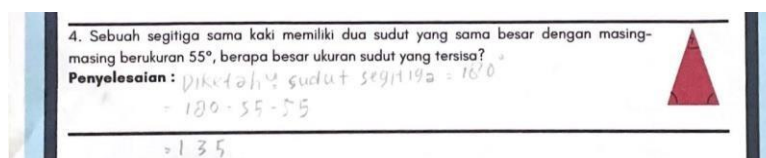 4. Sebuah segitiga sama kaki memiliki dua sudut yang sama besar dengan masing-
masing berukuran 55°, berapa besar ukuran sudut yang tersisa?
Penyelesaian : Diketahui sudut segitiga = 180
= 180 - 55 - 55
= 135